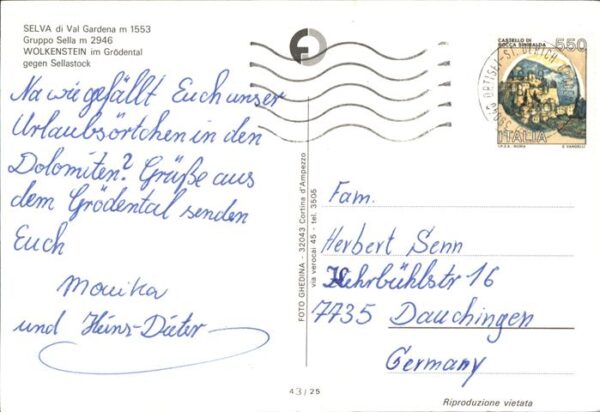 SELVA di Val Gardena m 1553
Gruppo Sella m 2946
WOLKENSTEIN im Grödental
gegen Sellastock
Na wie gefällt Euch unser
Urlaubsörtchen in den
Dolomiten? Grüße aus
dem Grödental senden
Euch
Monika
und Heinz-Dieter
FOTO GHEDINA - 32043 Cortina d'Ampezzo
via verocai 45 - tel. 3505
CASTELLO DI
ROCCA SINIBALDA
550
ITALIA
I.P.Z.S. ROMA
E. VANGELLI
ORTISEI-ST. ULRICH
Fam.
Herbert Senn
Hehrbühlstr 16
7735 Dauchingen
Germany
43/25
Riproduzione vietata